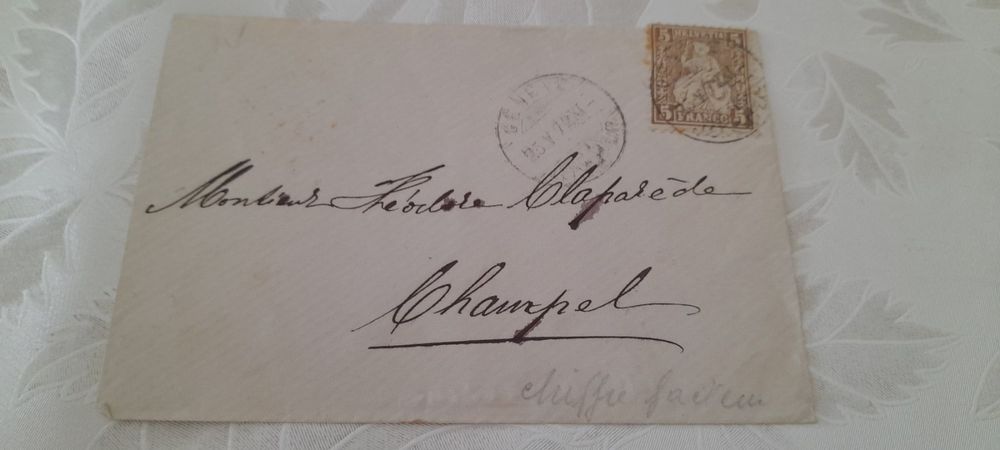 5 HELVETIA 5
5 FRANCO 5
GENEVE
Monsieur Théodore Claparède
Champel
chiffre facteur